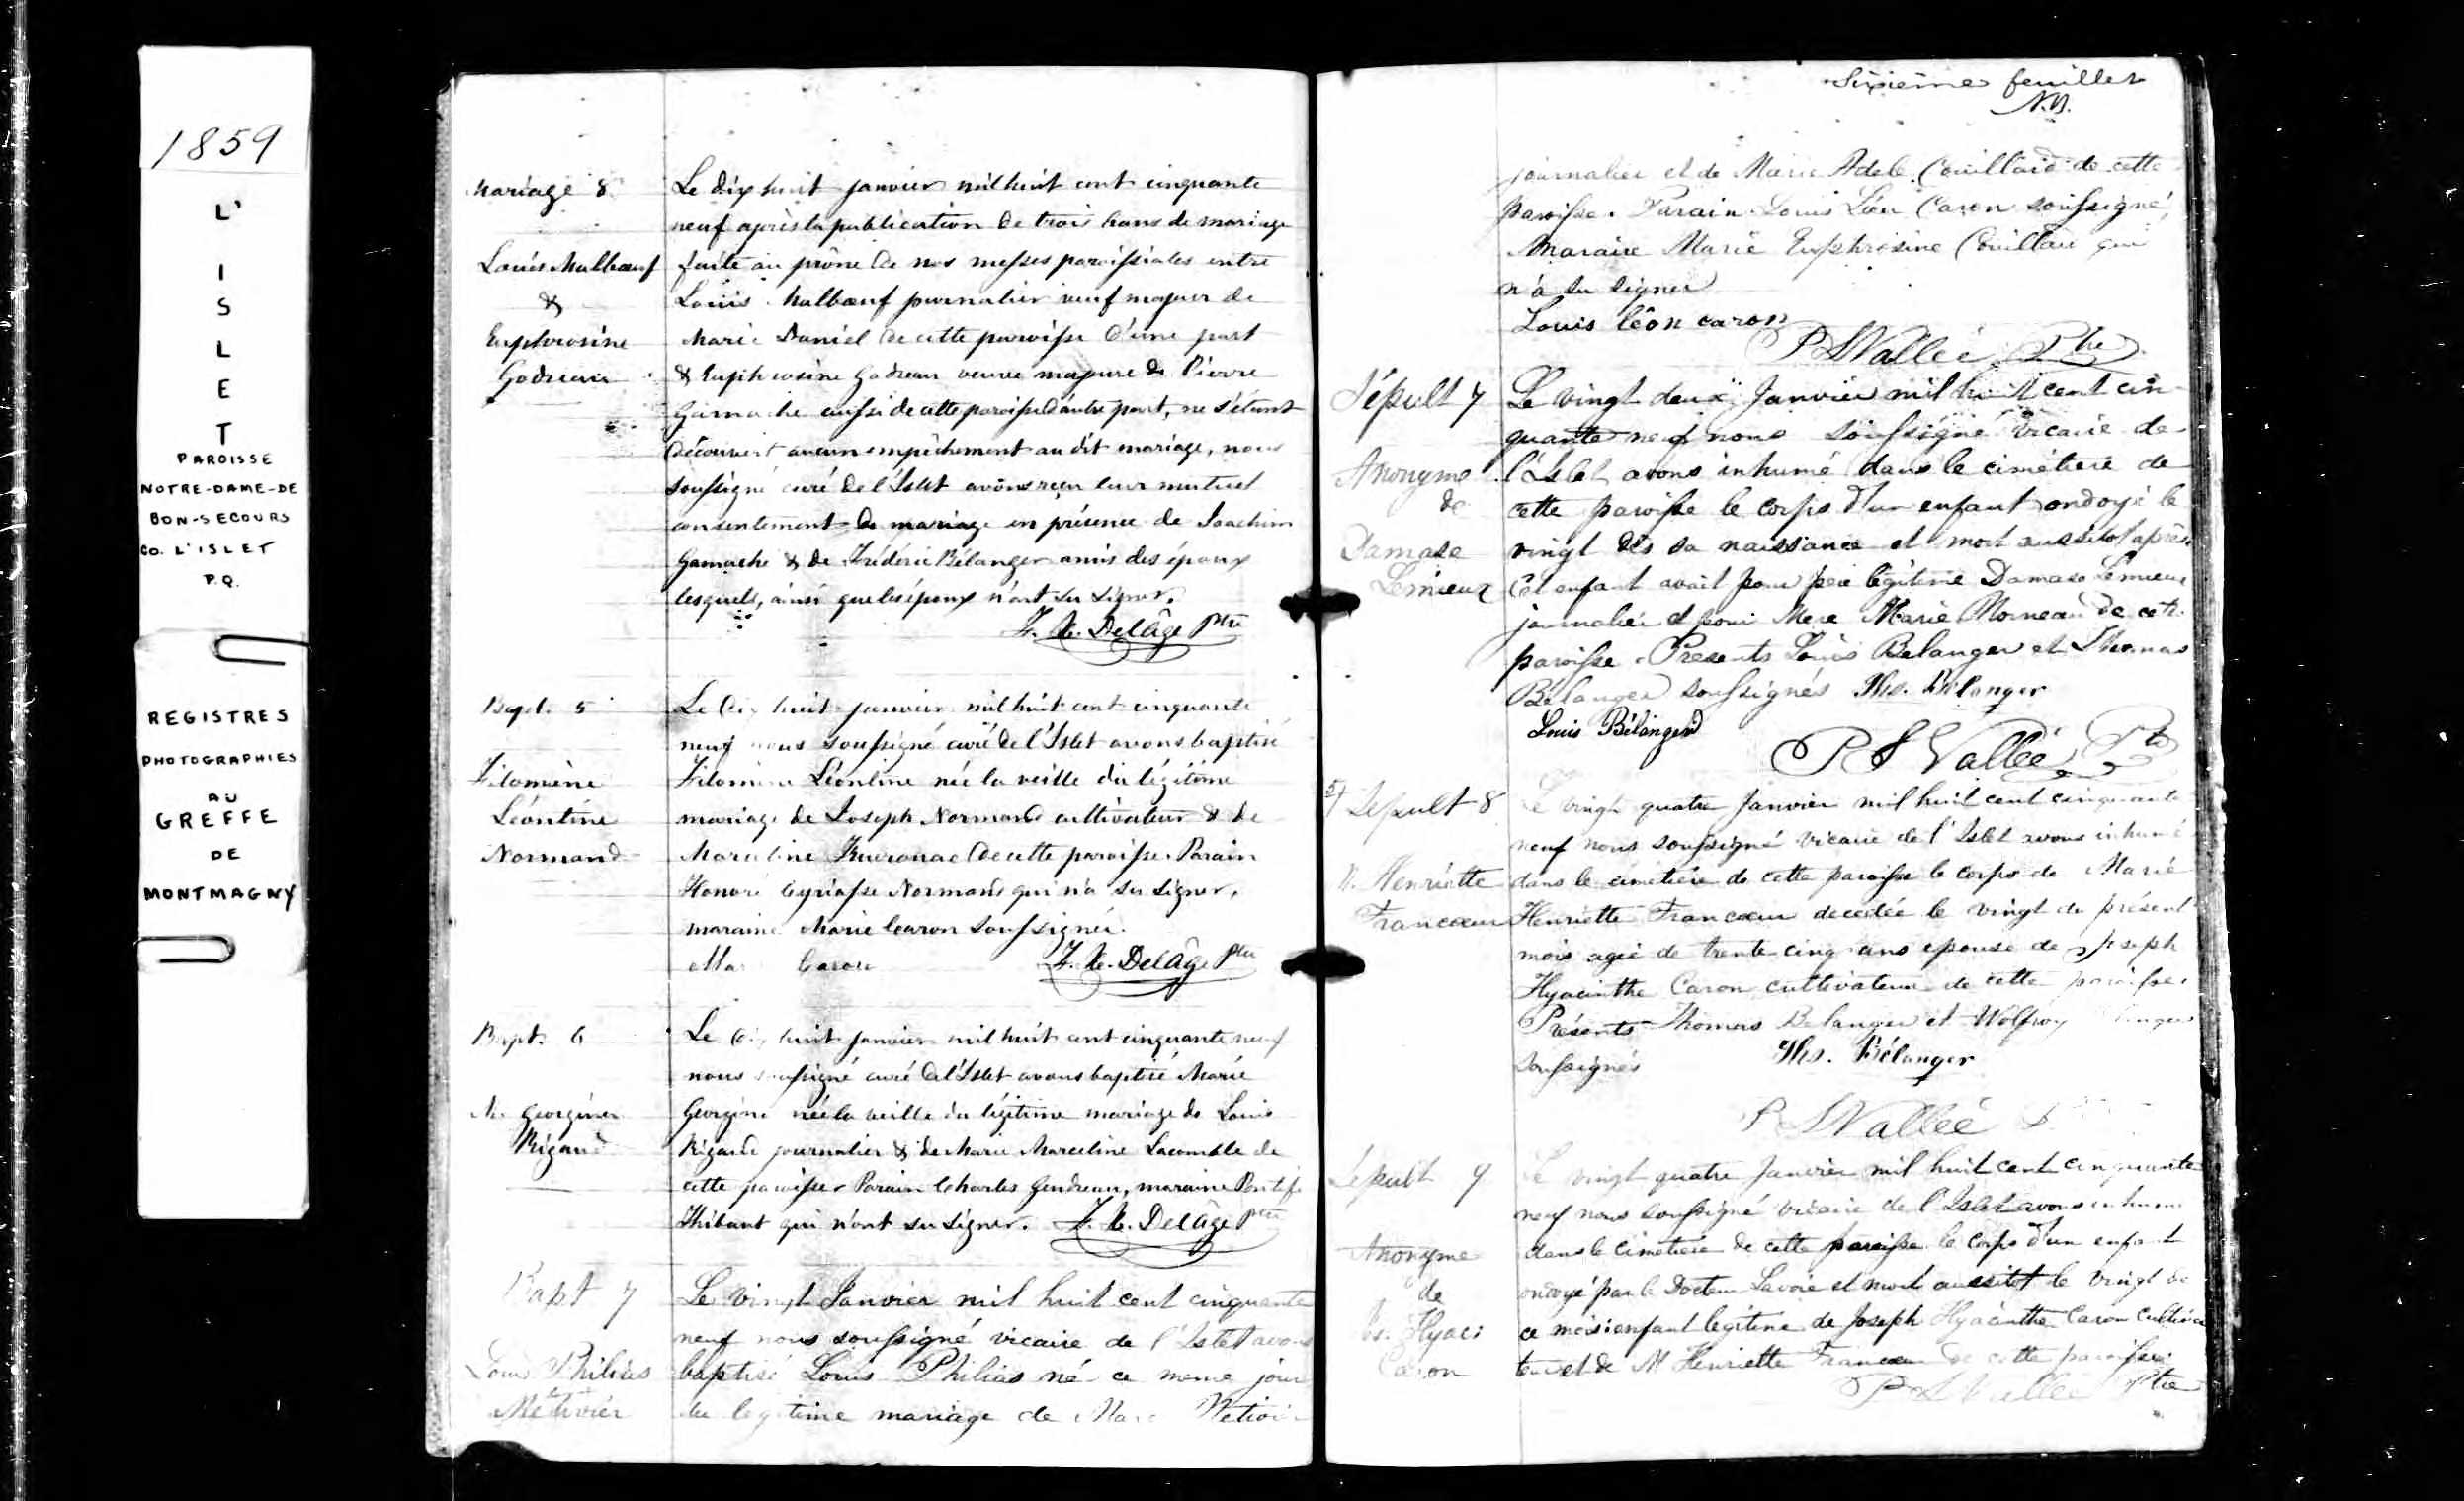 1859
L'
I
S
L
E
T
PAROISSE
NOTRE-DAME-DE
BON-SECOURS
CO. L'ISLET
P.Q.
REGISTRES
PHOTOGRAPHIES
AU
GREFFE
DE
MONTMAGNY
Mariage 8
Louis Malbœuf
&
Euphrosine
Godreau
Le dix huit janvier mil huit cent cinquante
neuf après la publication de trois bans de mariage
faite au prône de nos messes paroissiales entre
Louis Malbœuf journalier veuf majeur de
Marie Daniel de cette paroisse d'une part
& Euphrosine Godreau veuve majeure de Pierre
Gamache aussi de cette paroisse d'autre part, ne s'étant
découvert aucun empêchement au dit mariage, nous
soussigné curé de l'Islet avons reçu leur mutuel
consentement de mariage en présence de Joachim
Gamache & de Frédéric Bélanger amis des époux
lesquels, ainsi que les époux n'ont su signer.
Delâge Ptre
Bapt. 5
Filomène
Léontine
Normand
Le dix huit janvier mil huit cent cinquante
neuf nous soussigné curé de l'Islet avons baptisé
Filomène Léontine née la veille du légitime
mariage de Joseph Normand cultivateur & de
de cette paroisse. Parain
Honoré Normand qui n'a su signer,
maraine Marie Caron soussignée.
Caron
Delâge Ptre
Bapt. 6
M. Georgina
Rigaud
Le dix huit janvier mil huit cent cinquante neuf
nous soussigné curé de l'Islet avons baptisé Marie
née la veille du légitime mariage de Louis
journalier & de Marie Marceline Lacomble de
cette paroisse Parain Charles Gendreau, maraine
Thibaut qui n'ont su signer. Delâge Ptre
Bapt 7
Louis Philias
Métivier
Le vingt Janvier mil huit cent cinquante
neuf nous soussigné vicaire de l'Islet avons
baptisé Louis Philias né ce meme jour
du legitime mariage de
Sixième feuillet
journalier et de Marie Adele Couillard de cette
paroisse. Parain Louis Léon Caron soussigné,
Maraine Marie Euphrosine Couillard qui
n'a su signer
Louis léon caron
P S Vallée Ptre
Sépult 7
Anonyme
de
Damase
Lemieux
Le vingt deux Janvier mil huit cent cin
quante neuf nous soussigné vicaire de
l'Islet avons inhumé dans le cimétiere de
cette paroisse le corps d'un enfant ondoyé le
vingt dès sa naissance et mort aussitot après.
Cet enfant avait pour père légitime Damase Lemieux
journalier et pour Mere Marie Morneau de cette
paroisse. Presents Louis Belanger et Thomas
Bélanger soussignés Ths. Bélanger
Louis Bélanger
P S Vallée Ptre
Sepult 8
M. Henriette
Francœur
Le vingt quatre Janvier mil huit cent cinquante
neuf nous soussigné vicaire de l'Islet avons inhumé
dans le cimetiére de cette paroisse le corps de Marie
Henriette Francœur decedée le vingt du présent
mois agée de trente cinq ans epouse de Joseph
Hyacinthe Caron cultivateur de cette paroisse.
Présents Thomas Belanger et Wolfroy
soussignés Ths. Bélanger
P S Vallée
Sepult 9
Anonyme
de
Caron
Le vingt quatre Janvier mil huit cent cinquante
neuf nous soussigné vicaire de l'Islet avons inhumé
dans le cimetiere de cette paroisse le corps d'un enfant
ondoyé par le Docteur Lavoie et mort aussitot le vingt de
ce mois enfant legitime de Joseph Hyacinthe Caron cultiva
teur et de M Henriette Francœur de cette paroisse.
P S Vallée Ptre